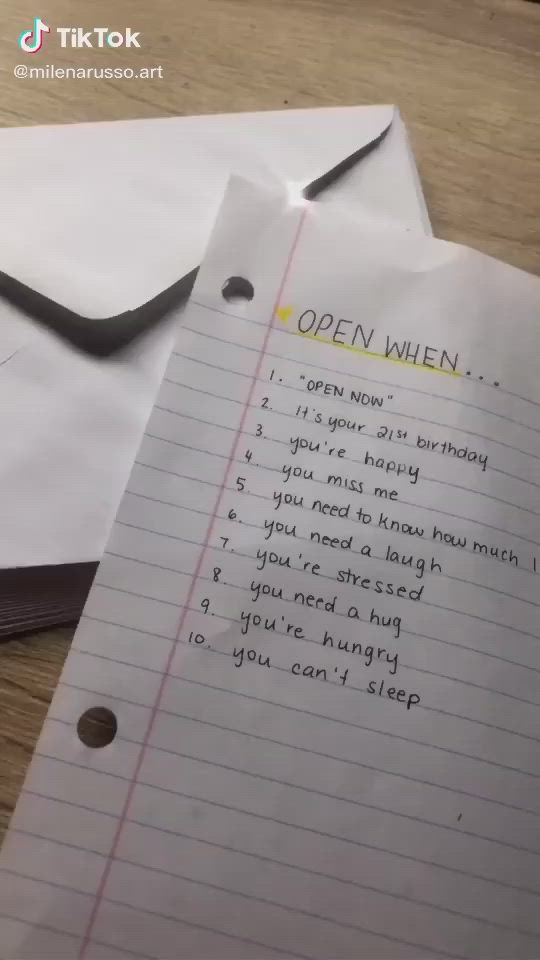 TikTok
@milenarusso.art
OPEN WHEN...
1. "OPEN NOW"
2. It's your 21st birthday
3. you're happy
4. you miss me
5. you need to know how much I
6. you need a laugh
7. you're stressed
8. you need a hug
9. you're hungry
10. you can't sleep